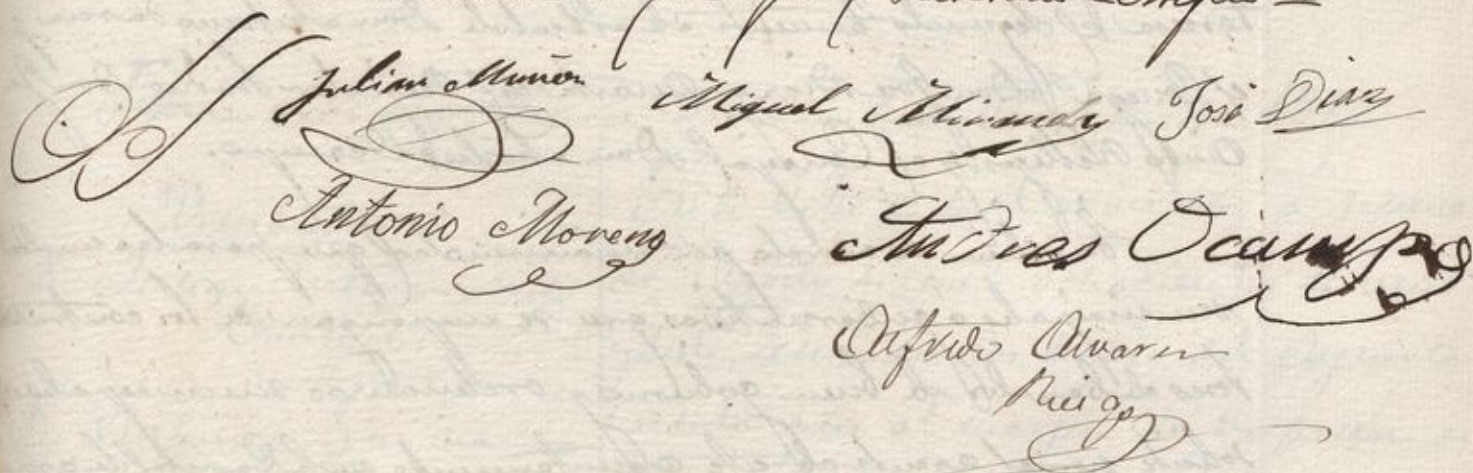 Julian Muñoz Miguel Miranda José Diaz
Antonio Moreno Andres Ocampo
Alfredo Alvarez
Riego